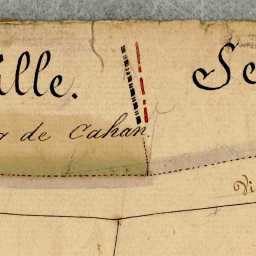 ille.
Se
de Cahan.
Vi